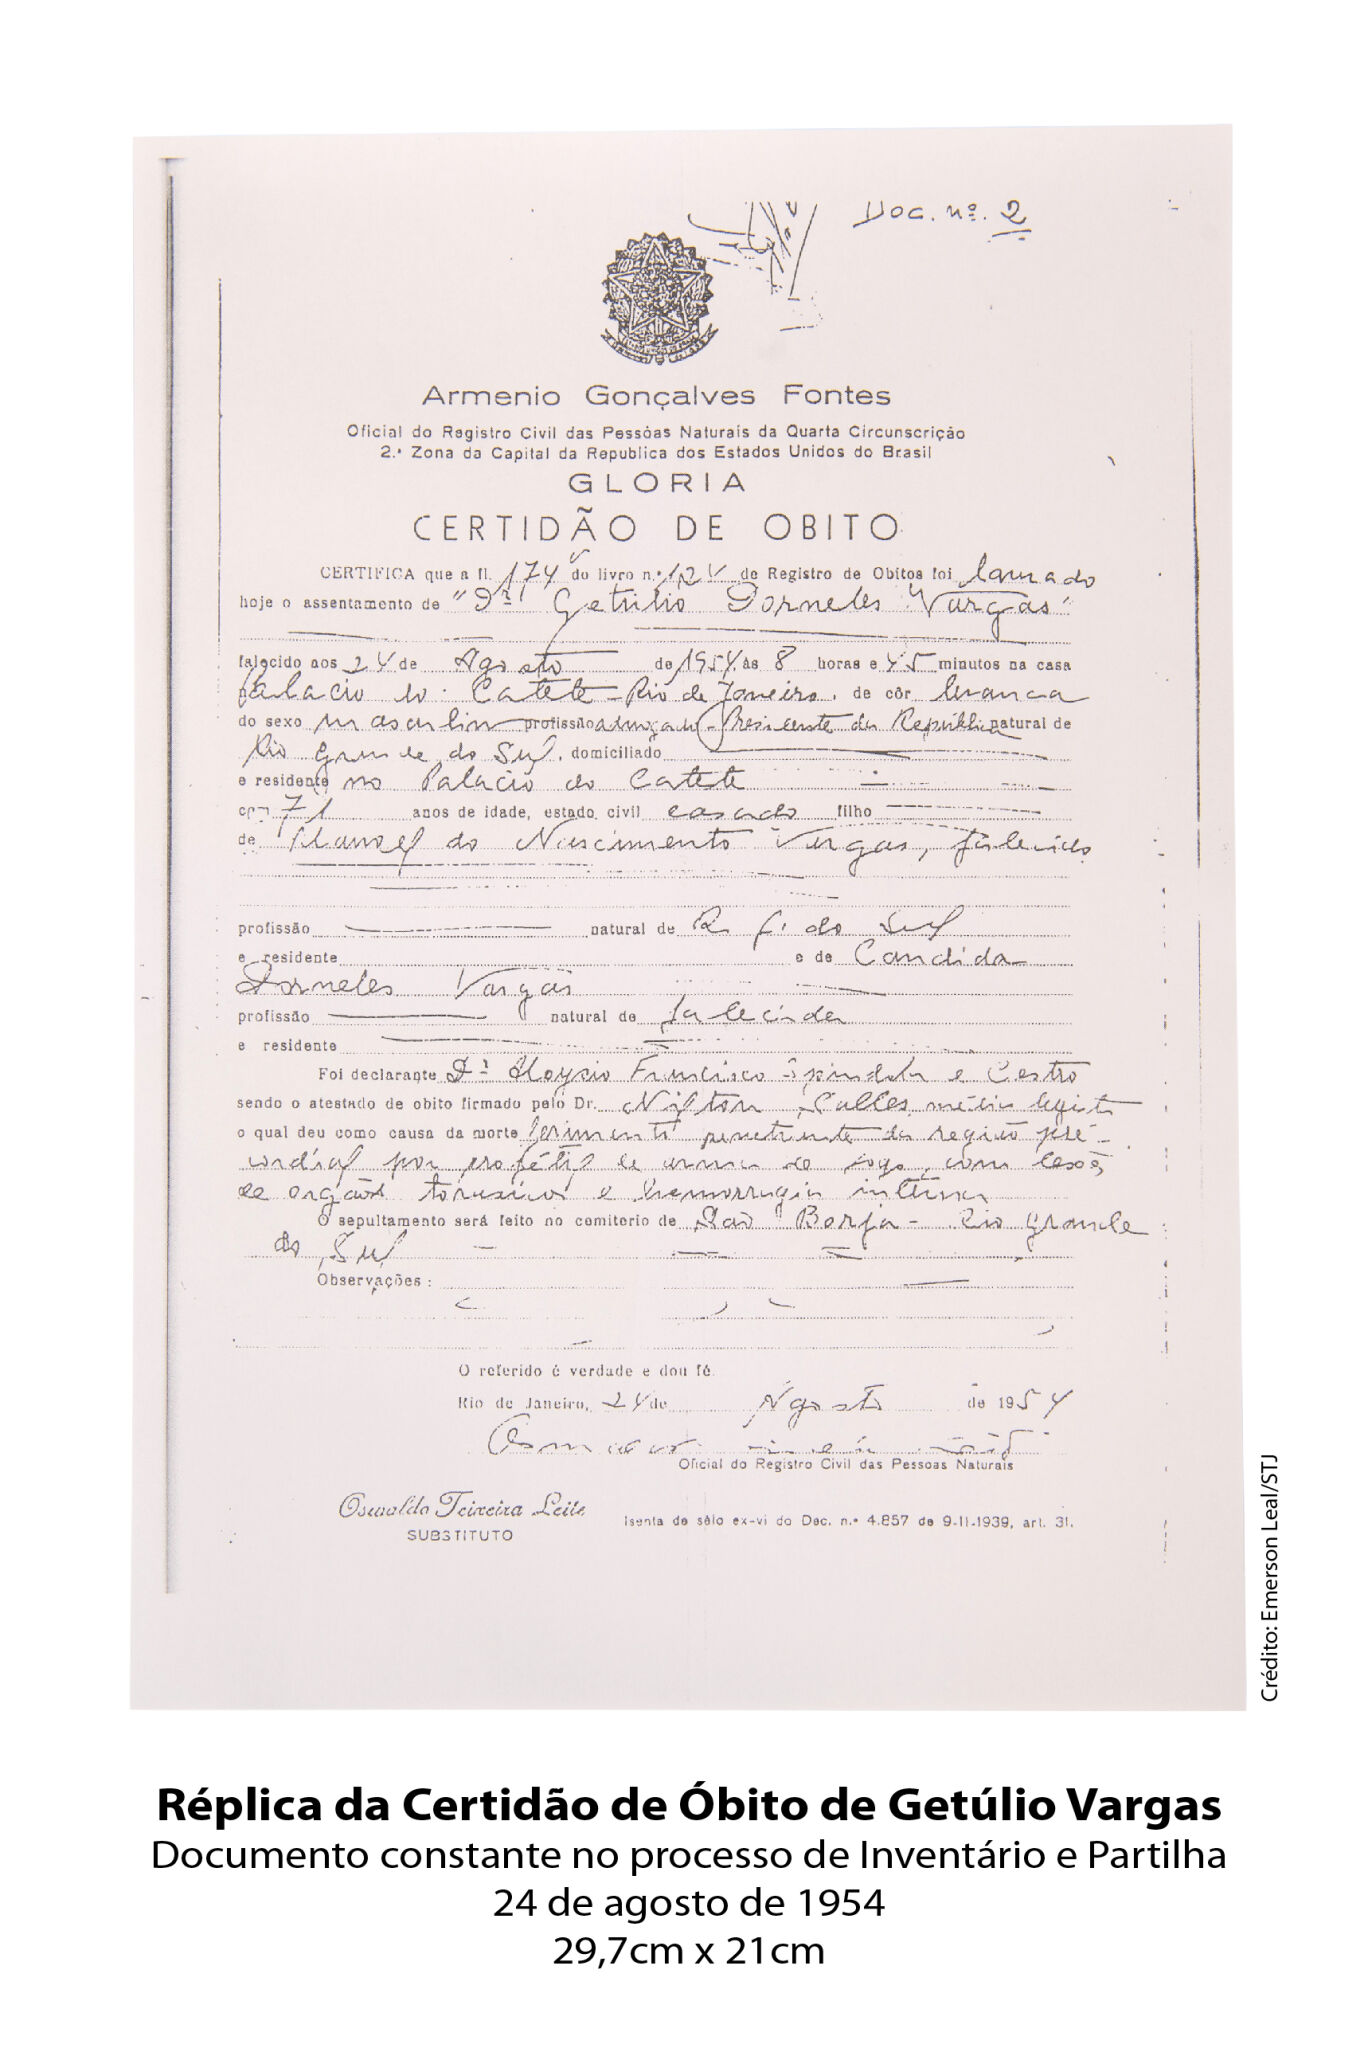 Doc. nº. 2
Armenio Gonçalves Fontes
Oficial do Registro Civil das Pessôas Naturais da Quarta Circunscrição
2.ª Zona da Capital da Republica dos Estados Unidos do Brasil
GLORIA
CERTIDÃO DE OBITO
CERTIFICA que a fl. 174 v do livro n.º 12 de Registro de Obitos foi lavrado
hoje o assentamento de "Dr. Getulio Dorneles Vargas"
falecido aos 24 de Agosto de 1954 ás 8 horas e 45 minutos na casa
Palacio do Catete - Rio de Janeiro. de côr branca
do sexo masculino profissão advogado - Presidente da República natural de
Rio Grande do Sul. domiciliado
e residente no Palacio do Catete
com 71 anos de idade, estado civil casado filho
de Manoel do Nascimento Vargas, falecido
profissão natural de R. G. do Sul
e residente e de Candida
Dorneles Vargas
profissão natural de falecida
e residente
Foi declarante Dr. Aloysio Francisco Spindola e Castro
sendo o atestado de obito firmado pelo Dr. Nilton Salles médico legista
o qual deu como causa da morte ferimento penetrante da região pré-
cordial por projétil de arma de fogo, com lesões
de orgãos toraxicos e hemorragia interna
O sepultamento será feito no cemiterio de São Borja - Rio Grande
do Sul
Observações :
O referido é verdade e dou fé.
Rio de Janeiro, 24 de Agosto de 1954
Oficial do Registro Civil das Pessoas Naturais
Oswaldo Teixeira Leite
SUBSTITUTO
Isenta de sêlo ex-vi do Dec. n.º 4.857 de 9-11-1939, art. 31.
Crédito: Emerson Leal/STJ
Réplica da Certidão de Óbito de Getúlio Vargas
Documento constante no processo de Inventário e Partilha
24 de agosto de 1954
29,7cm x 21cm